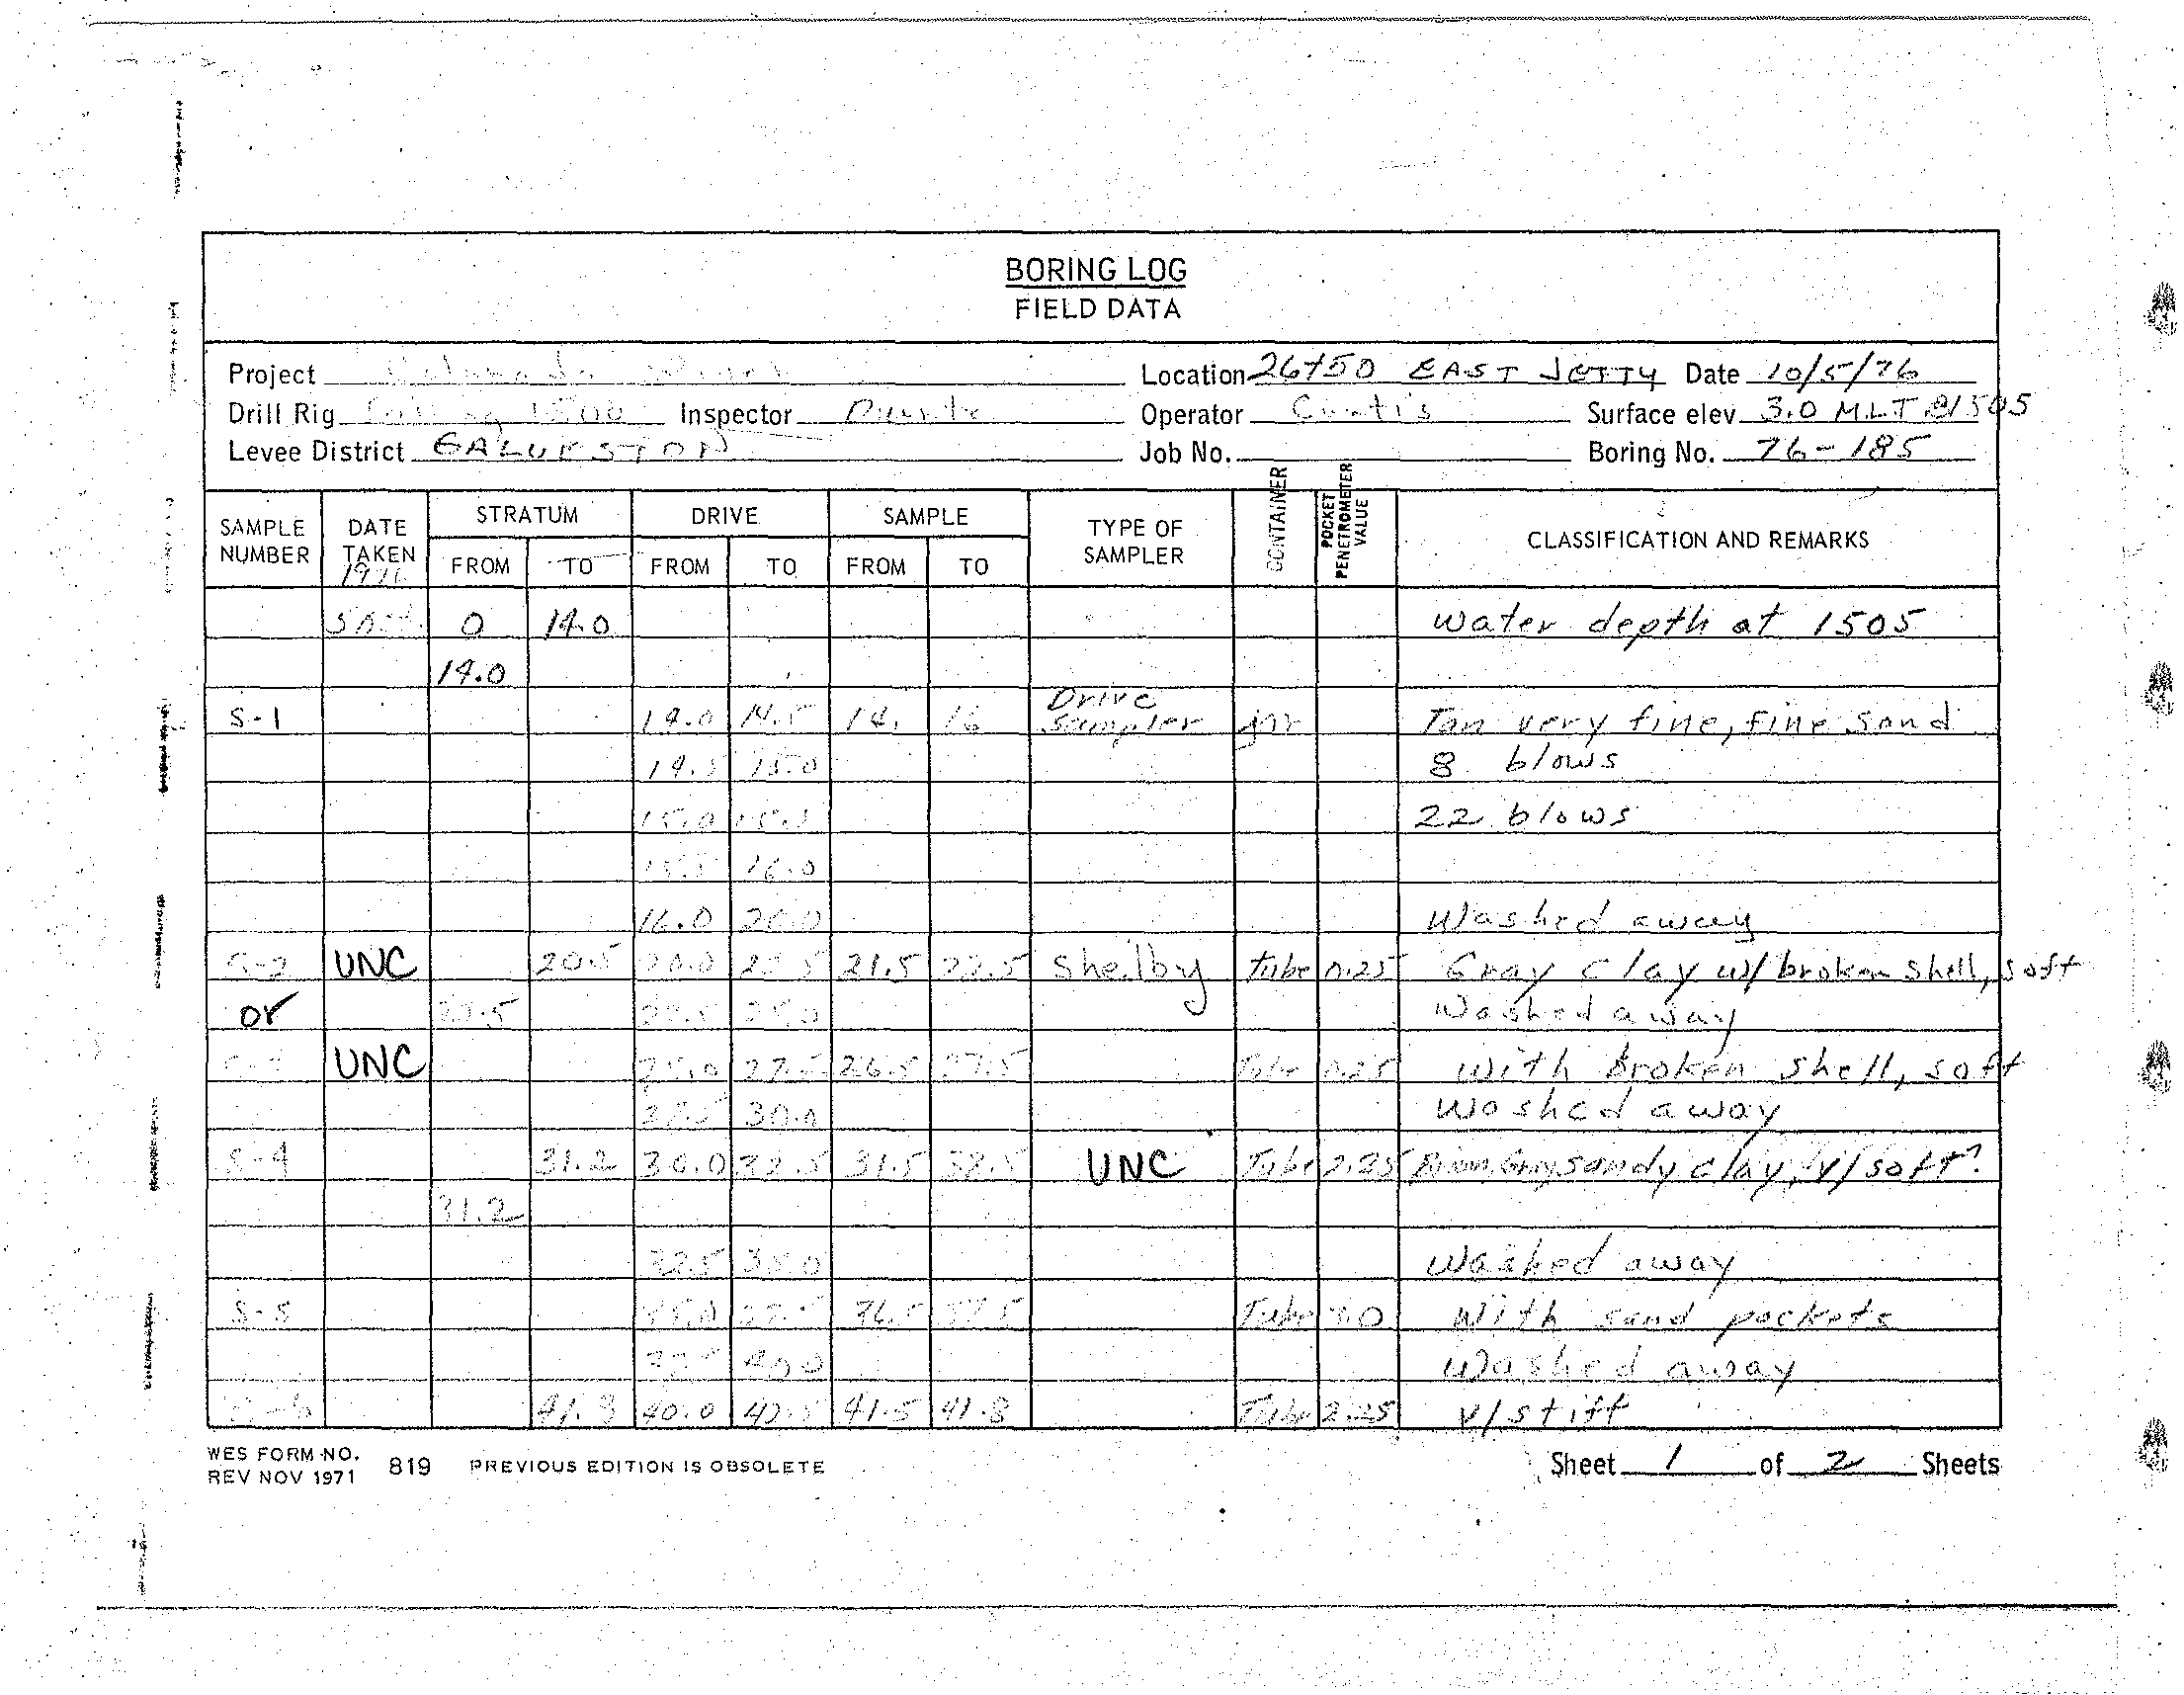 BORING LOG
FIELD DATA
Project Colorado River Location 26+50 EAST JETTY Date 10/5/76
Drill Rig Failing 1500 Inspector Operator Curtis Surface elev. 3.0 MLT @1505
Levee District GALVESTON Job No. Boring No. 76-185
SAMPLE NUMBER DATE TAKEN 1976 STRATUM FROM TO DRIVE FROM TO SAMPLE FROM TO TYPE OF SAMPLER CONTAINER POCKET PENETROMETER VALUE CLASSIFICATION AND REMARKS
0 14.0 Water depth at 1505
14.0
S-1 14.0 14.5 14. 16 Drive Sampler jar Tan very fine, fine sand
14.5 15.0 8 blows
15.0 15.5 22 blows
15.5 16.0
16.0 20.0 Washed away
S-2 UNC 20.5 20.0 22.5 21.5 22.5 Shelby Tube 0.25 Gray clay w/ broken shell, soft
or 22.5 22.5 25.0 Washed away
S-3 UNC 25.0 27.5 26.5 27.5 Tube 0.25 with broken shell, soft
27.5 30.0 Washed away
S-4 31.2 30.0 32.5 31.5 32.5 UNC Tube 2.25 sandy clay, v/soft?
31.2
32.5 35.0 Washed away
S-5 35.0 37.5 36.5 37.5 Tube With sand pockets
37.5 40.0 Washed away
S-6 41.8 40.0 42.5 41.5 41.8 Tube 2.25 v/stiff
WES FORM NO. REV NOV 1971 819 PREVIOUS EDITION IS OBSOLETE Sheet 1 of 2 Sheets